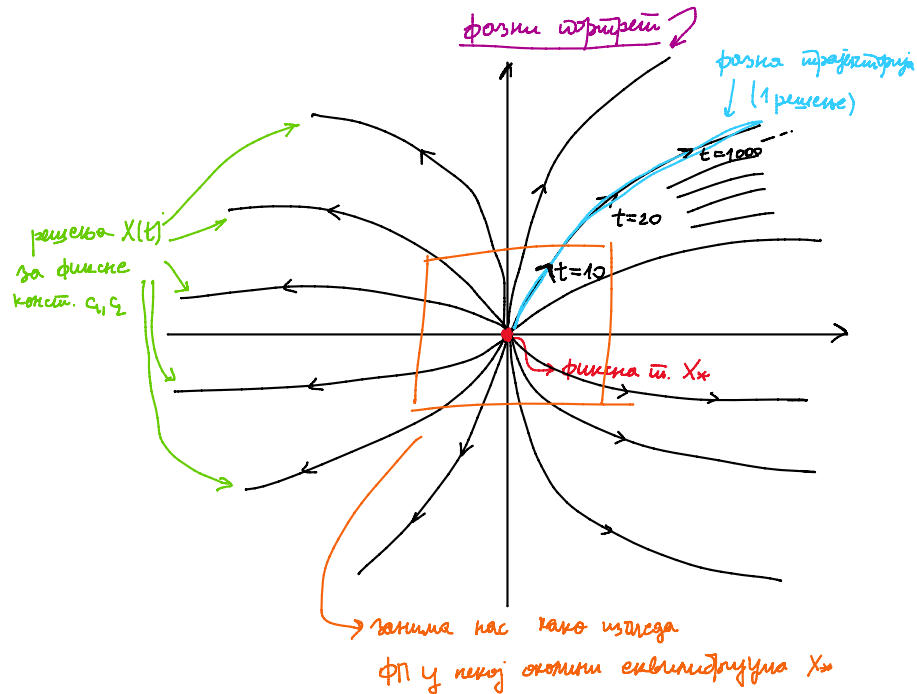 фазни портрет
фазна трајекторија
(1 решење)
t=1000
t=20
t=10
решења X(t)
за фиксне
конст. c₁, c₂
фиксна т. X*
занима нас како изгледа
ФП у некој околини еквилибријума X*